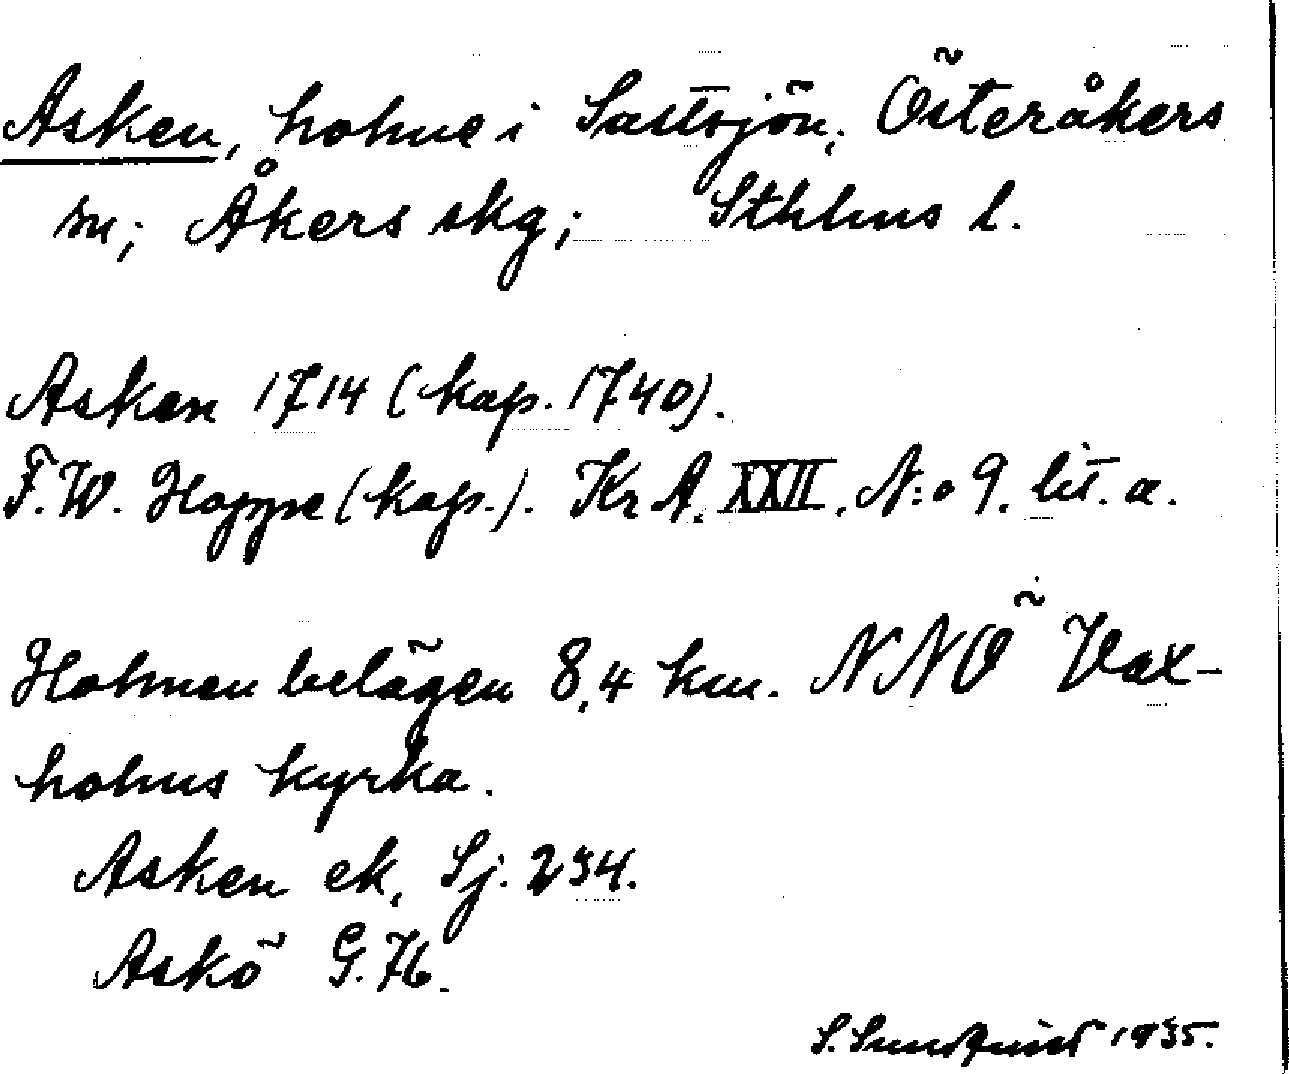 Asken, holme i Saltsjön; Österåkers
sn; Åkers skg; Sthlms l.
Asken 1714 (kap. 1740).
F.W. Hoppe (kap.). Kr A. XXII. N:o 9. lit. a.
Holmen belägen 8,4 km. NNÖ Vax-
holms kyrka.
Asken ek. Sj. 234.
Askö G. 76.
S. Sundquist 1935.